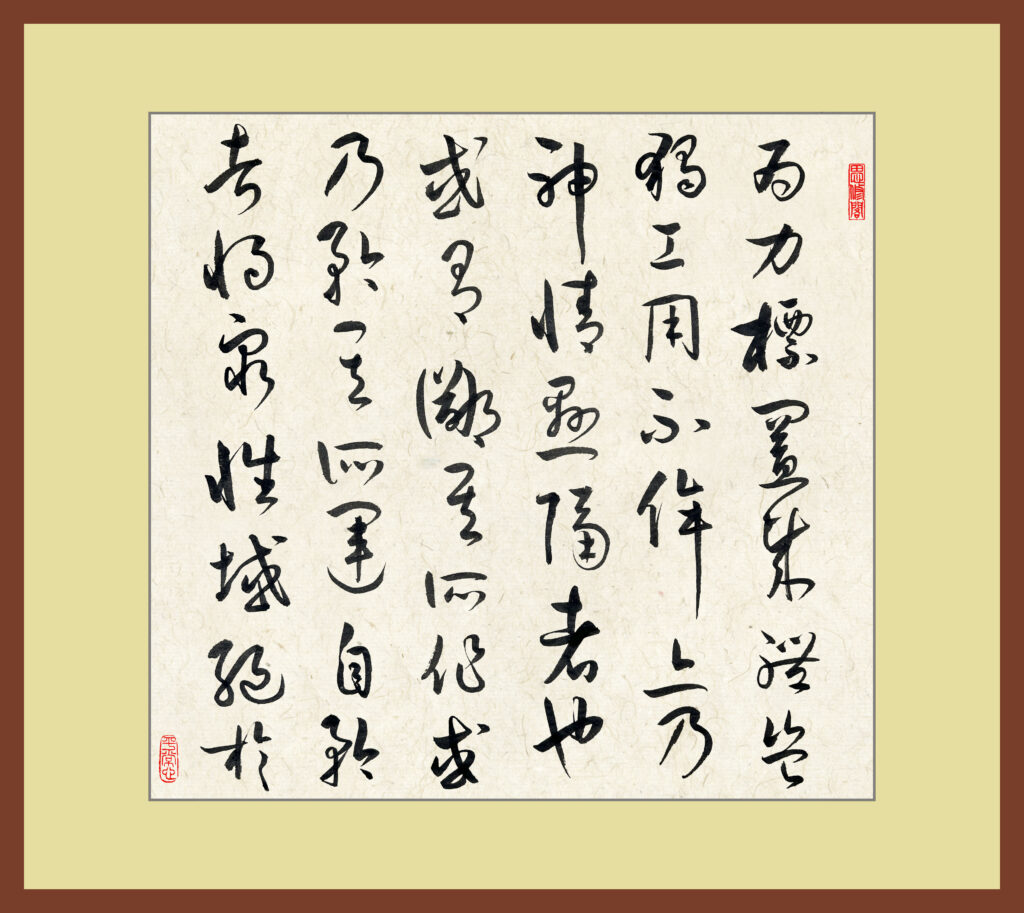 思修閣
為力標置成體豈
獨工用不侔亦乃
神情懸隔者也
或有鄙其所作或
乃矜其所運自矜
者將窮性域絕於
平常心